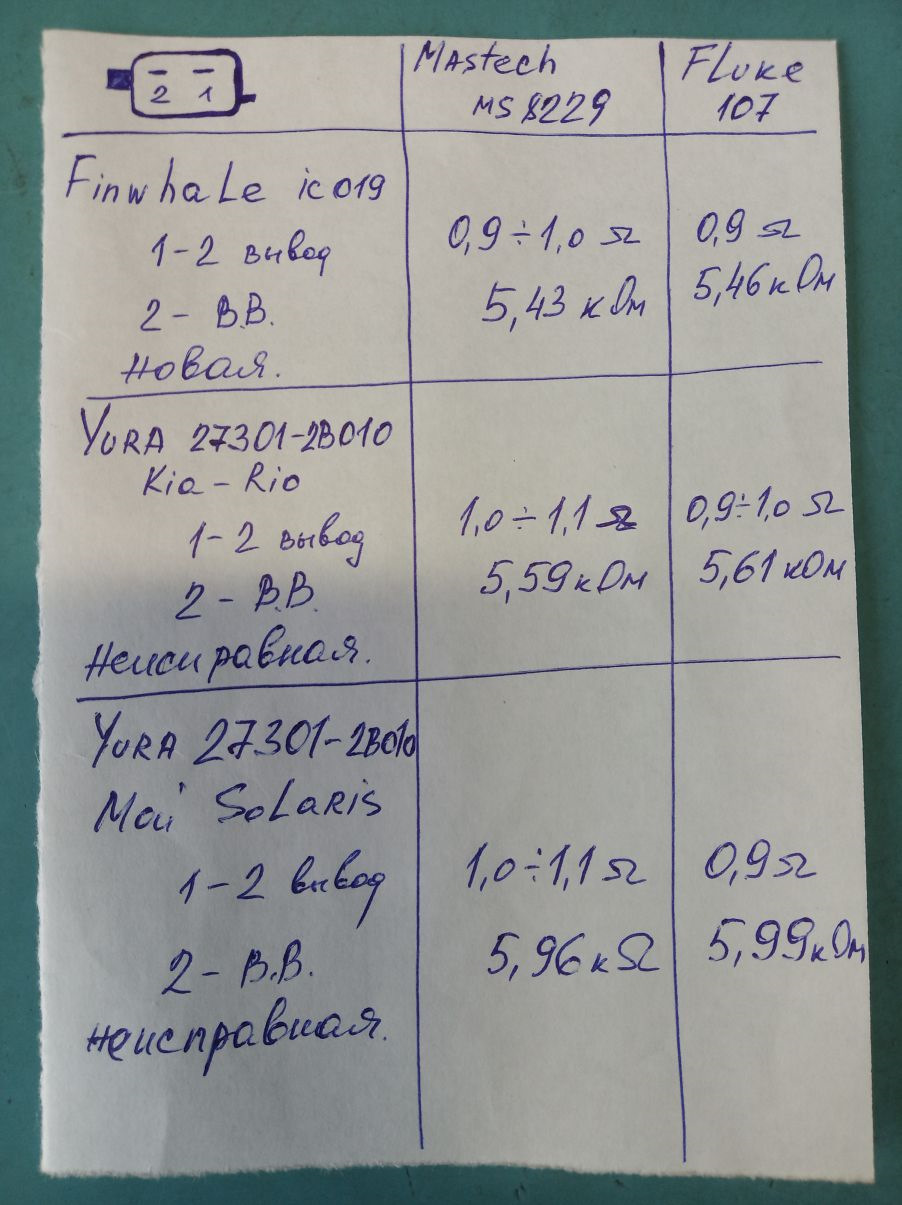 2 1
Mastech
MS 8229
Fluke
107
Finwhale ic019
1-2 вывод
2 - В.В.
новая.
0,9÷1,0 Ω
5,43 кОм
0,9 Ω
5,46 кОм
Yura 27301-2B010
Kia - Rio
1-2 вывод
2 - В.В.
неисправная.
1,0÷1,1 Ω
5,59 кОм
0,9÷1,0 Ω
5,61 кОм
Yura 27301-2B010
Мой Solaris
1-2 вывод
2 - В.В.
неисправная.
1,0÷1,1 Ω
5,96 кΩ
0,9 Ω
5,99 кОм